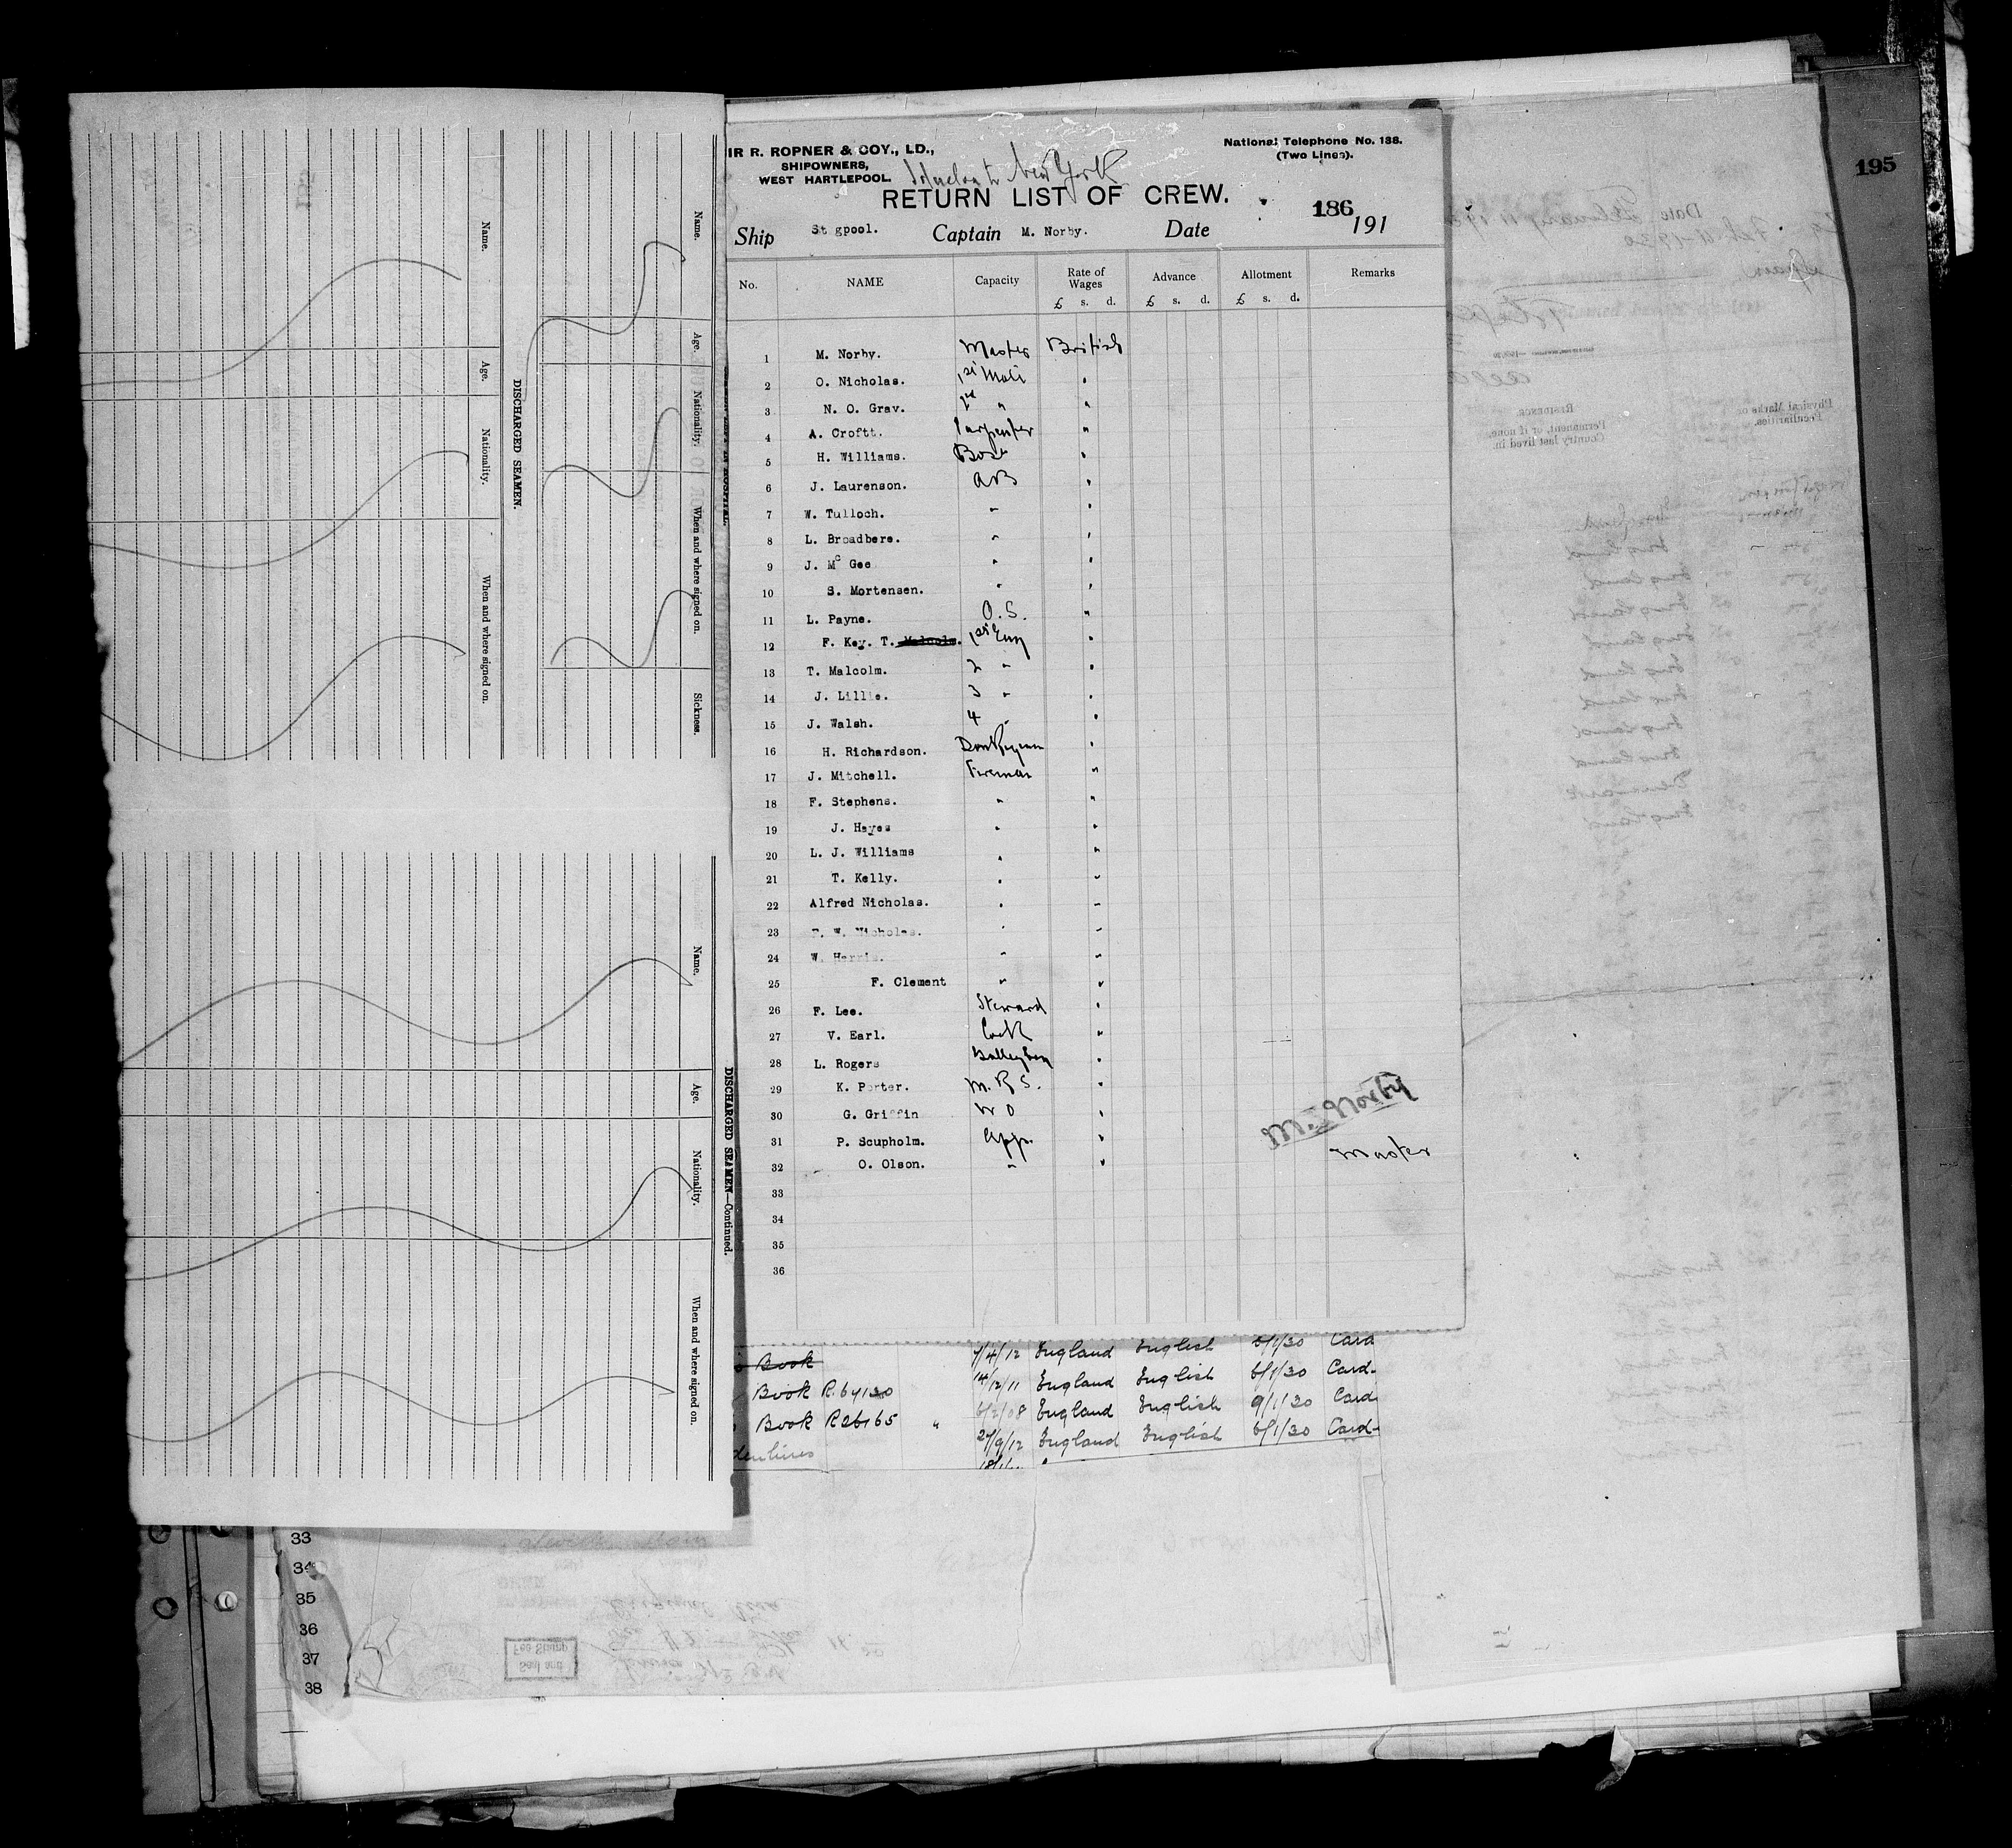 195
IR R. ROPNER & COY., LD.,
SHIPOWNERS,
WEST HARTLEPOOL.
National Telephone No. 138.
(Two Lines).
to New York
RETURN LIST OF CREW.
186
Ship St gpool. Captain M. Norby. Date 191
No. NAME Capacity Rate of Wages Advance Allotment Remarks
£ s. d. £ s. d. £ s. d.
1 M. Norby. Master British
2 O. Nicholas. 1st Mate "
3 N. O. Grav. 2nd " "
4 A. Croftt. Carpenter "
5 H. Williams. Bosn "
6 J. Laurenson. AB "
7 W. Tulloch. " "
8 L. Broadbere. " "
9 J. Mc Gee " "
10 S. Mortensen. " "
11 L. Payne. O.S. "
12 F. Key. T. Malcolm. 1st Eng "
13 T. Malcolm. 2 " "
14 J. Lillie. 3 " "
15 J. Walsh. 4 " "
16 H. Richardson. Donkeyman "
17 J. Mitchell. Fireman "
18 F. Stephens. " "
19 J. Hayes " "
20 L. J. Williams " "
21 T. Kelly. " "
22 Alfred Nicholas. " "
23 W. Nicholas. " "
24 W. Harris. " "
25 F. Clement " "
26 F. Lee. Steward "
27 V. Earl. Cook "
28 L. Rogers Galley boy "
29 K. Porter. M.R.S. "
30 G. Griffin W O "
31 P. Scupholm. App. "
32 O. Olson. " "
33
34
35
36
M. Norby
Master
Book 7/4/12 England English 6/1/30 Card
Book R.64130 14/12/11 England English 6/1/30 Card.
Book R26165 " 6/2/08 England English 9/1/30 Card
27/9/12 England English 6/1/30 Card-
Name. Age. Nationality. When and where signed on.
DISCHARGED SEAMEN.
Name. Age. Nationality. When and where signed on. Sickness.
Name. Age. Nationality. When and where signed on.
DISCHARGED SEAMEN—Continued.
33
34
35
36
37
38